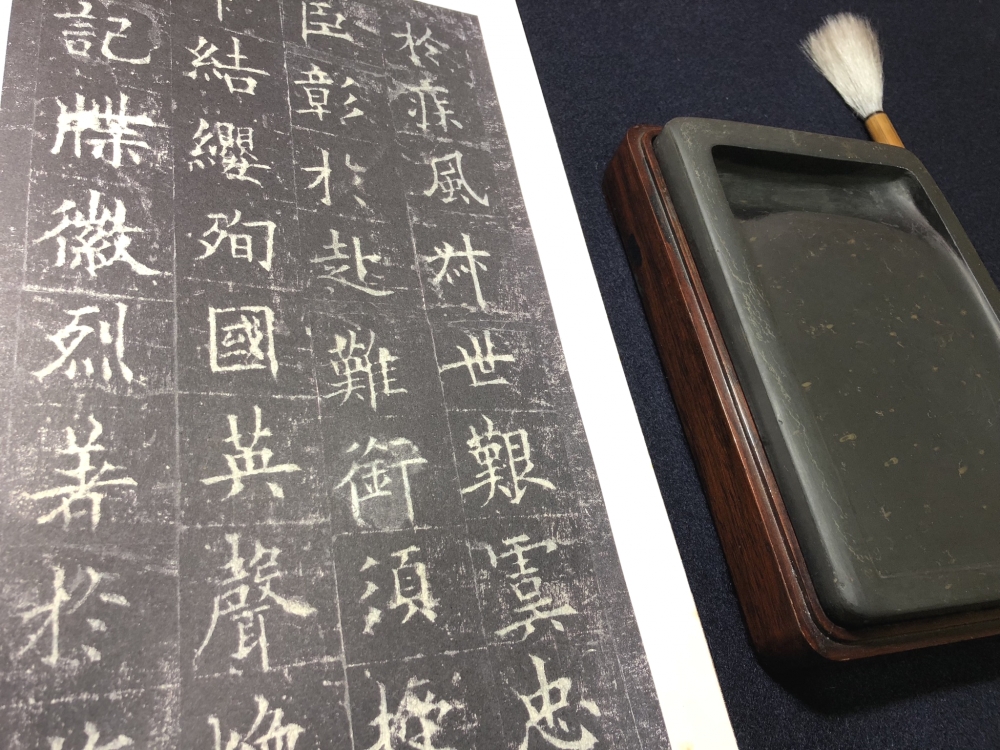 於疾風叔世艱虞忠
臣彰於赴難銜須授
結纓殉國英聲煥
記牒徽烈著於